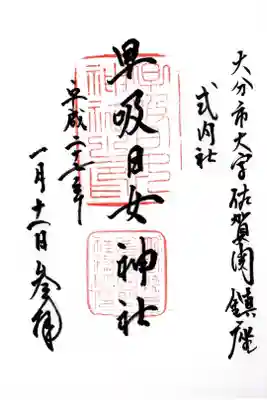 大分市大字佐賀関鎮座
式内社
早吸日女神社
平成二十三年
一月十一日参拝